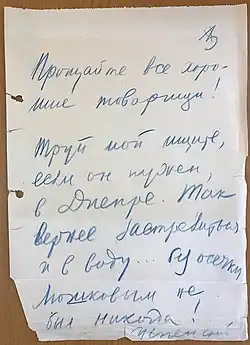 Прощайте все хоро-
шие товарищи!
Труп мой ищите,
если он нужен,
в Днепре. Так
вернее застрелиться
и в воду...
не
был никогда!